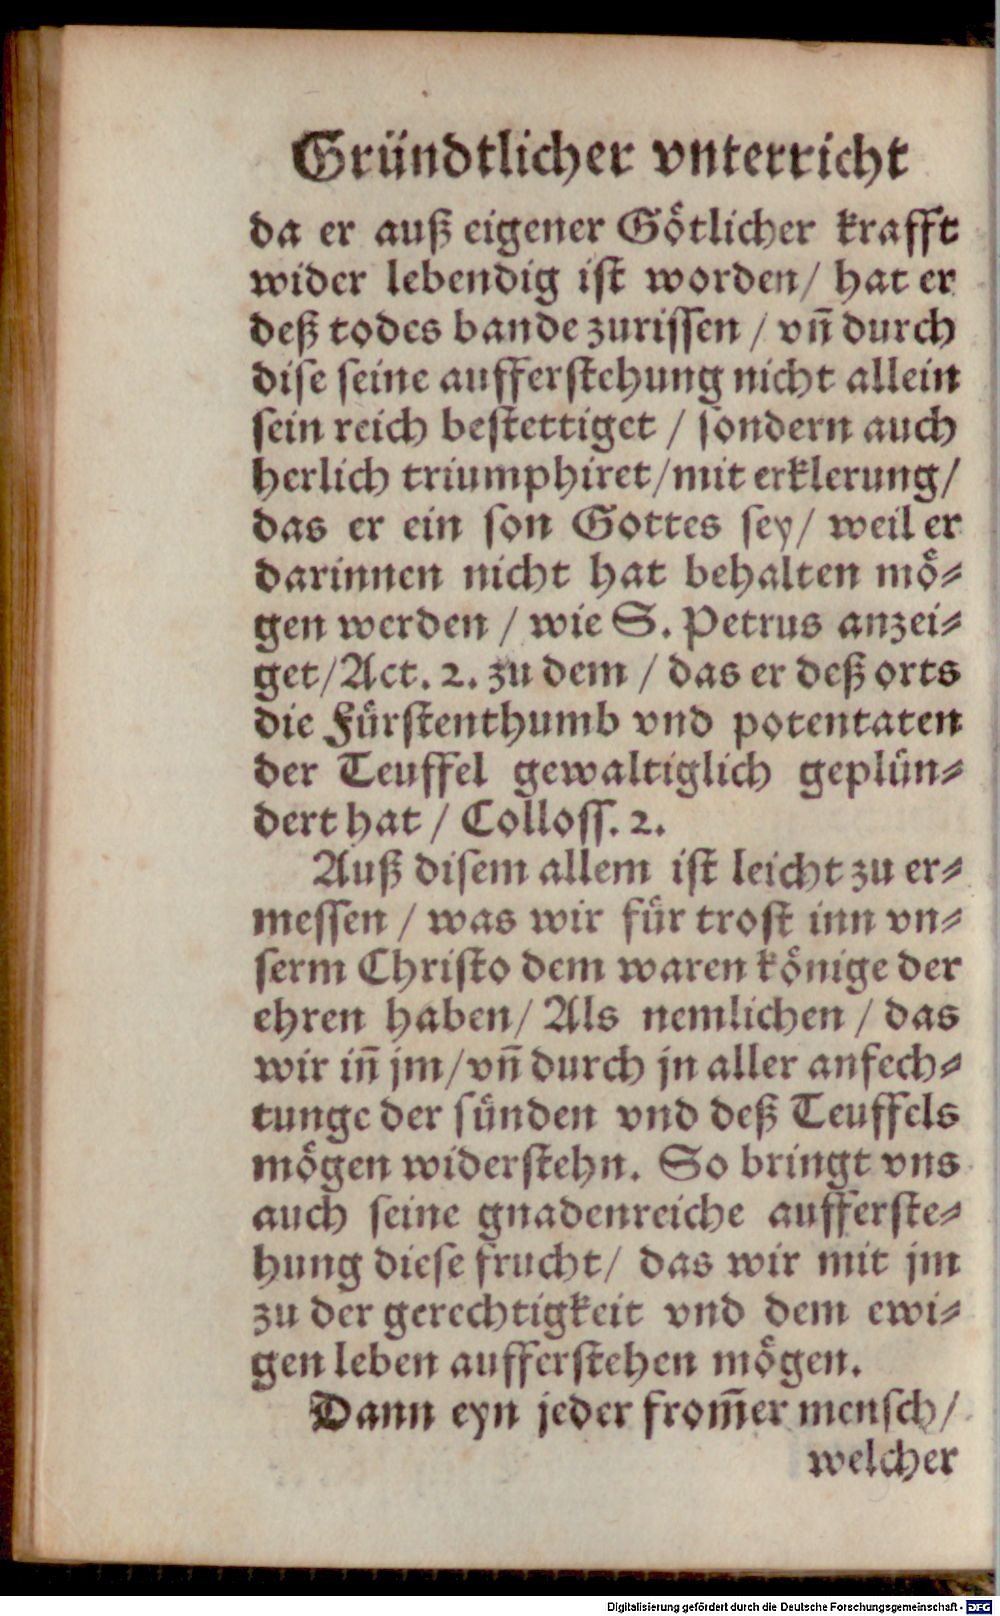 Gründtlicher vnterricht
da er auß eigener Götlicher krafft
wider lebendig ist worden/ hat er
deß todes bande zurissen / vñ durch
dise seine aufferstehung nicht allein
sein reich bestettiget / sondern auch
herlich triumphiret/mit erklerung/
das er ein son Gottes sey/ weil er
darinnen nicht hat behalten mö⸗
gen werden / wie S. Petrus anzei⸗
get/Act. 2. zu dem / das er deß orts
die Fürstenthumb vnd potentaten
der Teuffel gewaltiglich geplün⸗
dert hat / Colloss. 2.
Auß disem allem ist leicht zu er⸗
messen / was wir für trost inn vn⸗
serm Christo dem waren könige der
ehren haben/ Als nemlichen / das
wir iñ jm/vñ durch jn aller anfech⸗
tunge der sünden vnd deß Teuffels
mögen widerstehn. So bringt vns
auch seine gnadenreiche aufferste⸗
hung diese frucht/ das wir mit jm
zu der gerechtigkeit vnd dem ewi⸗
gen leben aufferstehen mögen.
Dann eyn jeder from̃er mensch/
welcher
Digitalisierung gefördert durch die Deutsche Forschungsgemeinschaft - DFG